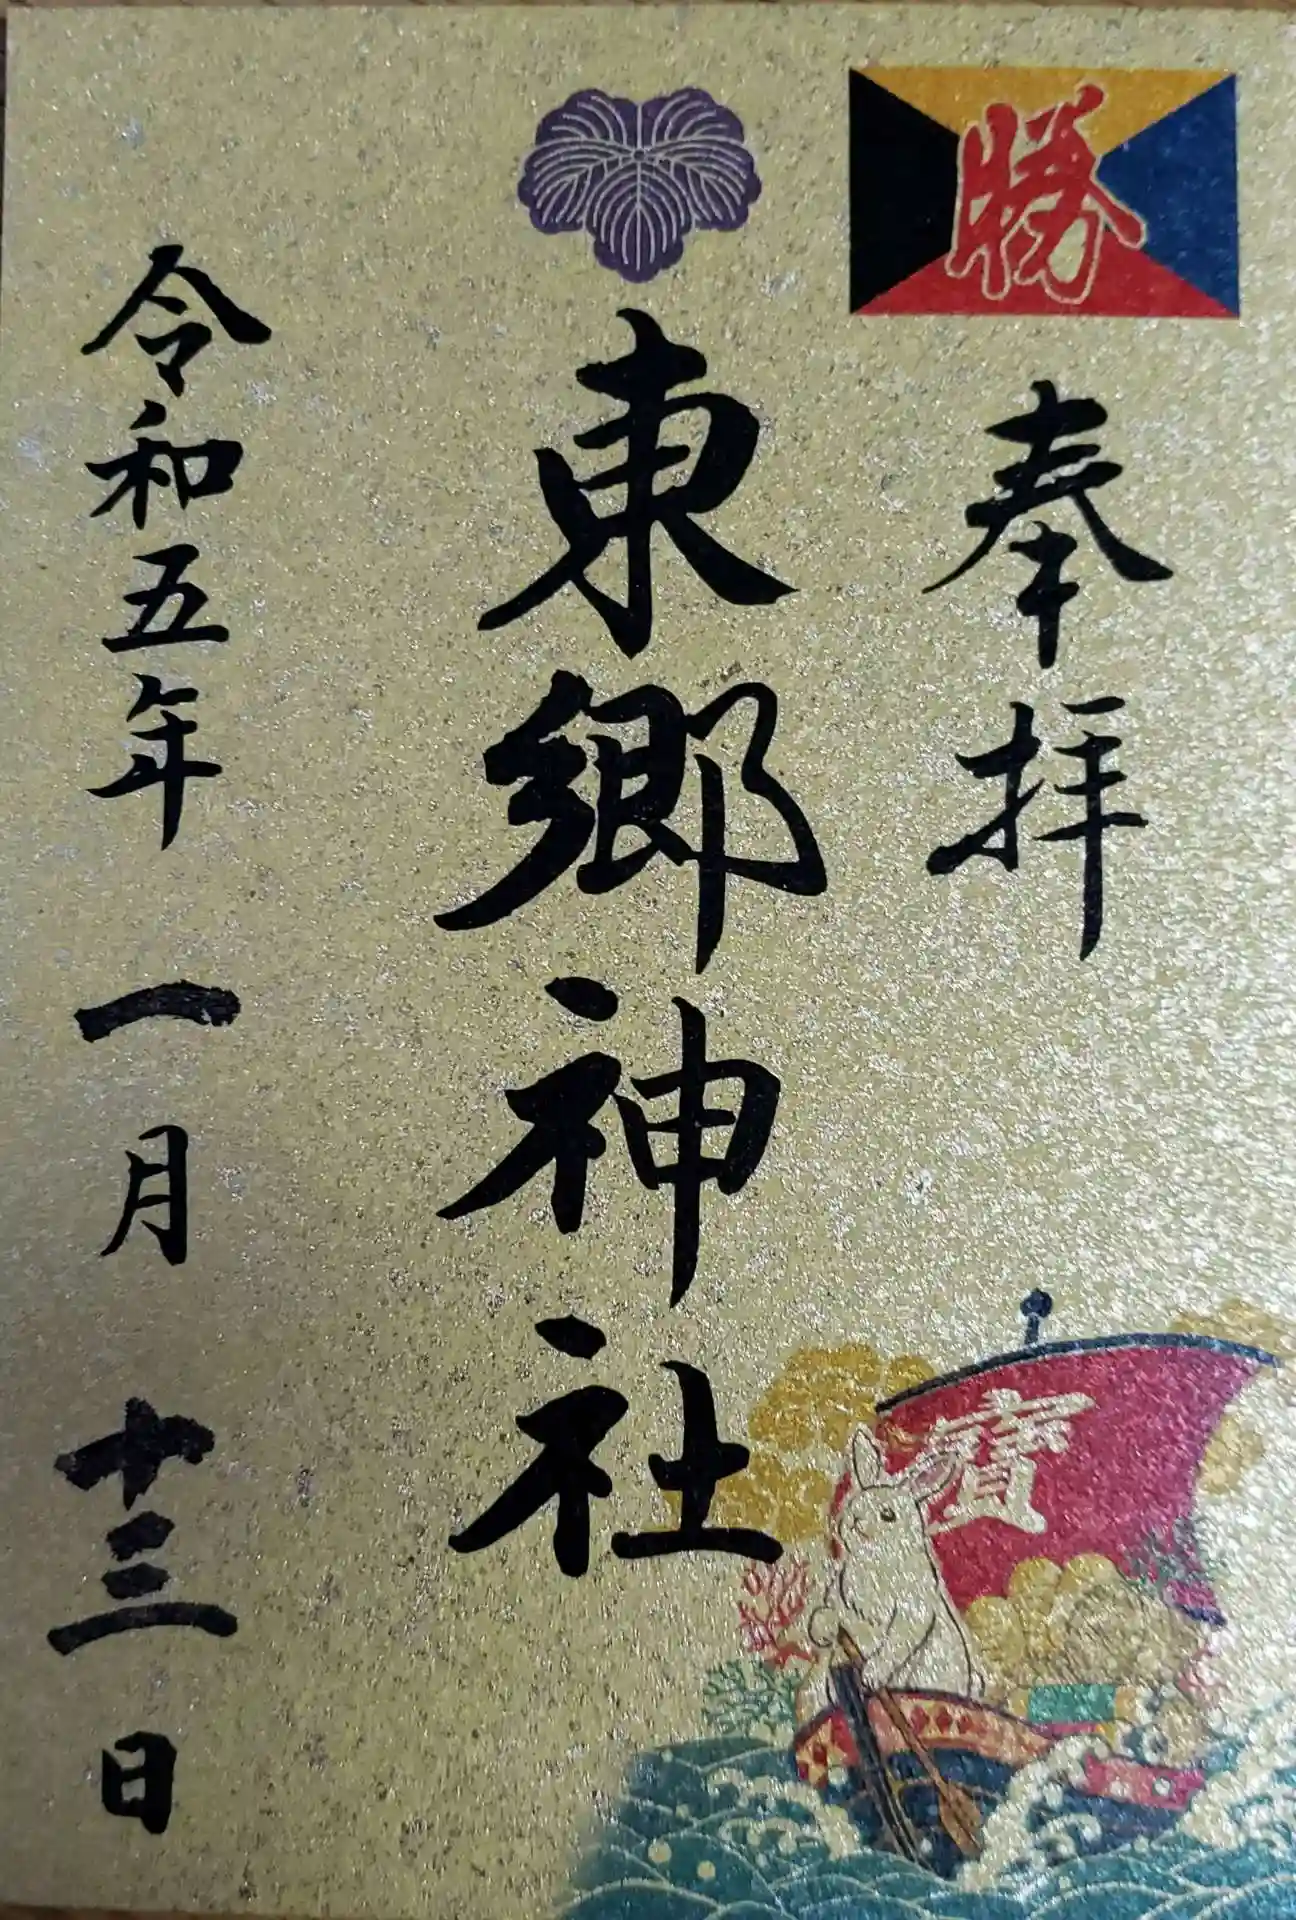 勝
奉拝
東郷神社
令和五年一月十三日
寶